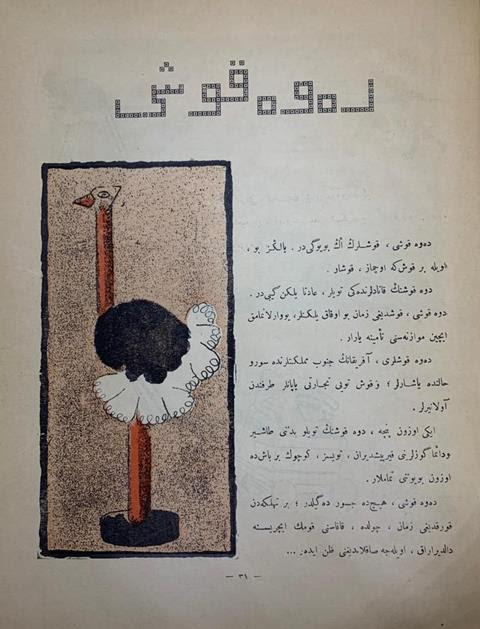 دەوە قوشی
دەوە قوشی ، قوشلرڭ اڭ بویوگی‌در . یالڭز بو ،
اویله بر قوش‌كه اوچماز ، قوشار .
دەوە قوشنڭ قانادلرندەكی تویلر ، عادتا یلكن گبی‌در .
دەوە قوشی ، قوشدیغی زمان بو اوفاق یلكنلر ، یووارلانمامق
ایچین موازنەسنی تأمینه یارار .
دەوە قوشلری ، آفریقانڭ جنوب مملكتلرندە سورو
حالندە یاشارلر ؛ وقوش تویی تجارتی یاپانلر طرفندن
آولانیرلر .
ایكی اوزون پنجه ، دوە قوشنڭ تویلو بدنی طاشیر
ودائما گوزلرینی قیرپیشدیران ، تویسز ، كوچوك بر باش‌دە
اوزون بویونی تماملار .
دەوە قوشی ، هیچ‌دە جسور دەگیلدر ؛ بر تهلكەدن
قورقدیغی زمان ، چولدە ، قافاسنی قومك ایچریسنه
دالدیراراق ، اویله‌جه صاقلاندیغنی ظن ایدەر ...
— ٣١ —